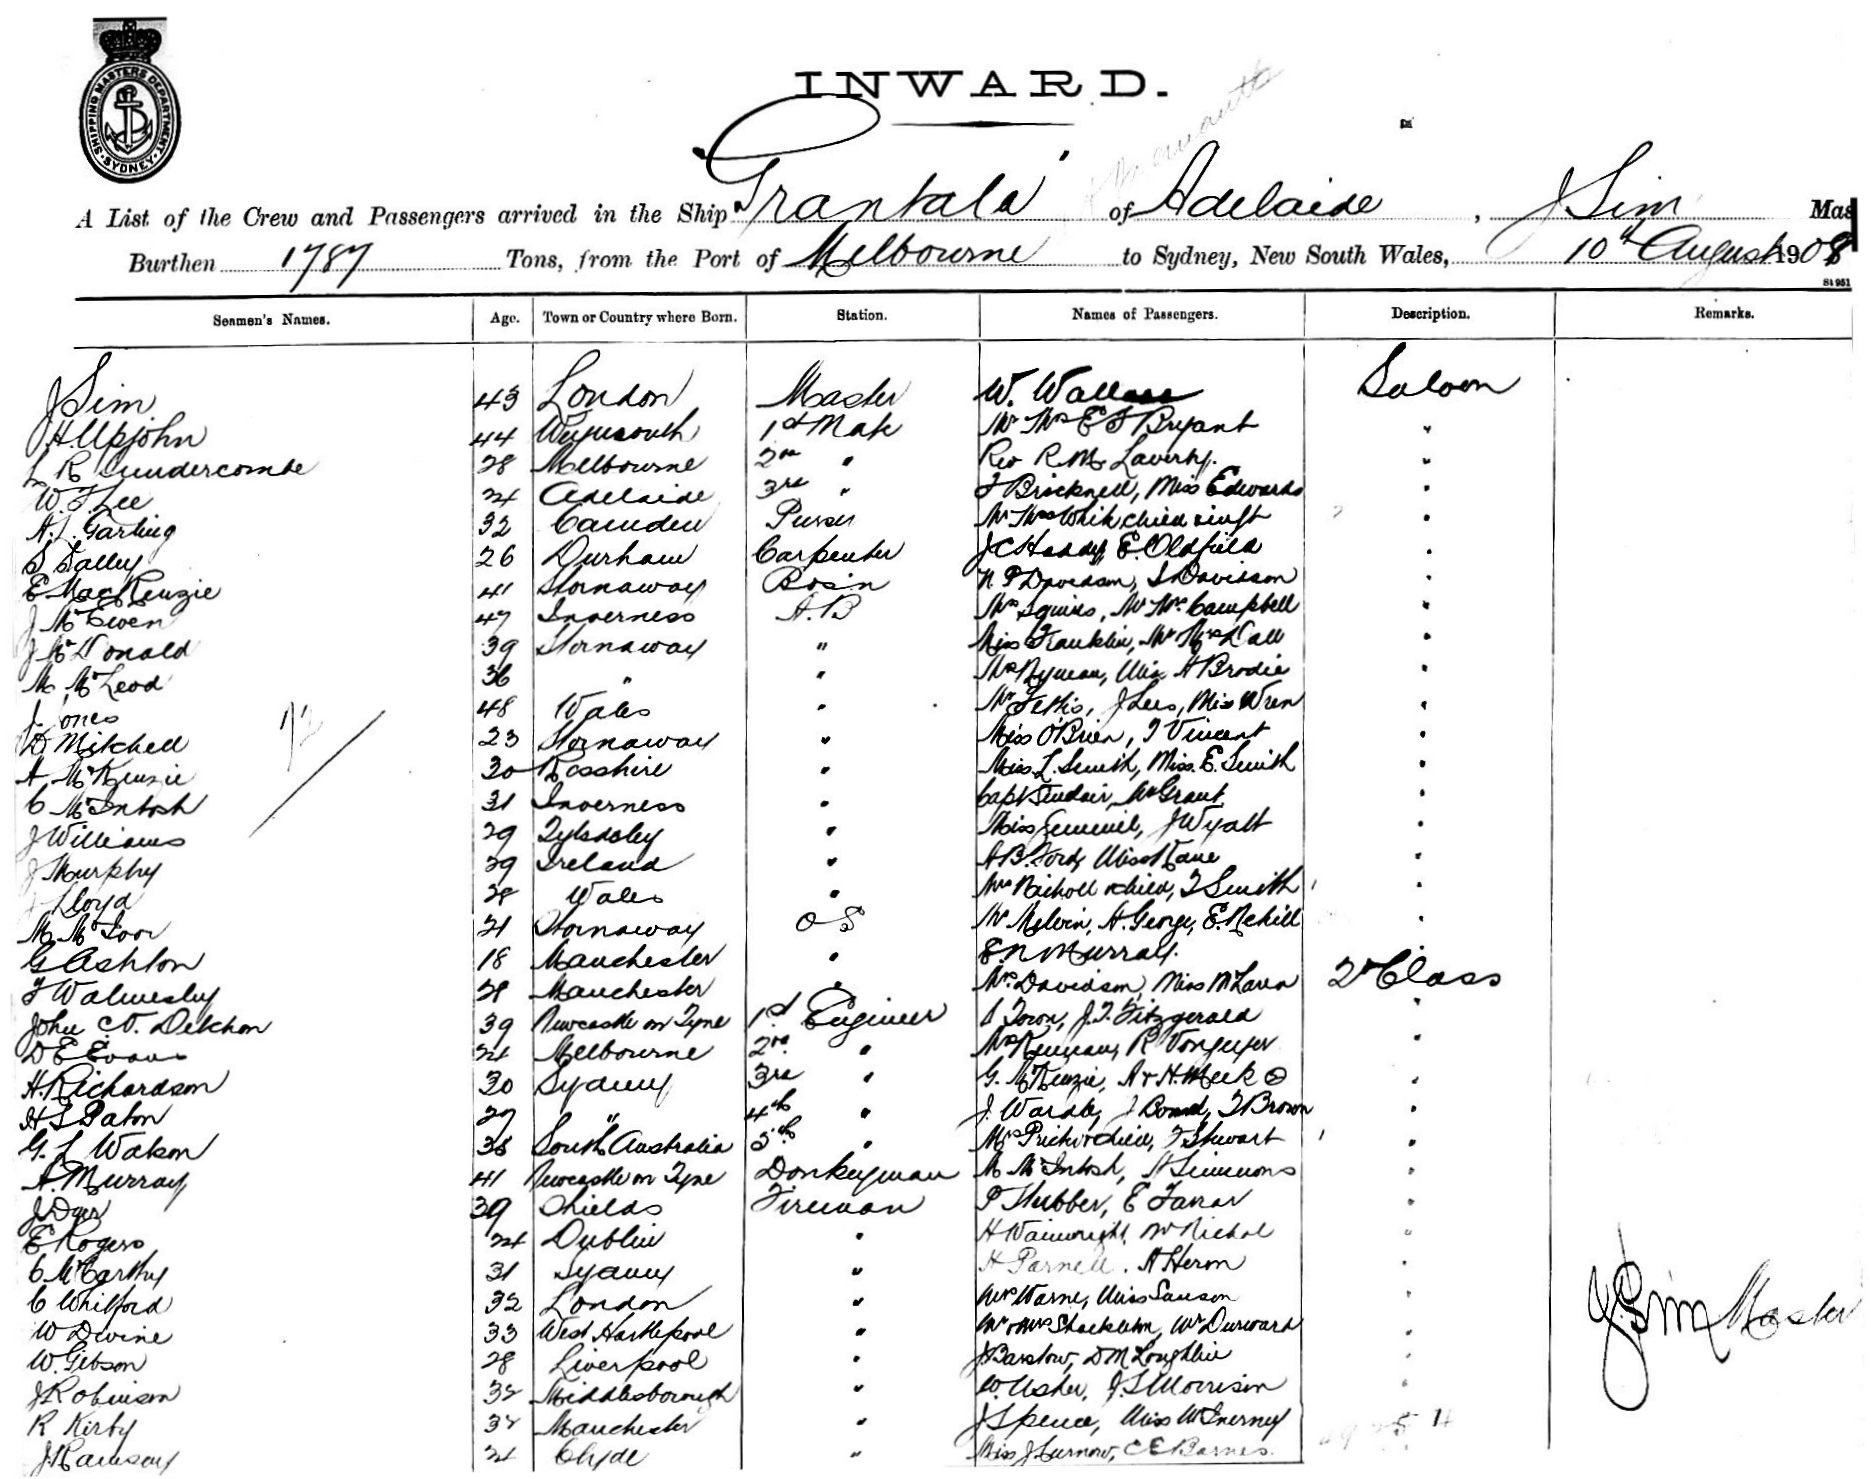 SHIPPING MASTERS DEPARTMENT
SYDNEY
INWARD.
A List of the Crew and Passengers arrived in the Ship "Grantala" of Adelaide, J Sim Mas
Burthen 1787 Tons, from the Port of Melbourne to Sydney, New South Wales, 10th August 1908
St 951
Seamen's Names. Age. Town or Country where Born. Station. Names of Passengers. Description. Remarks.
J Sim 43 London Master W. Wallace Saloon
J H. Upjohn 44 Weymouth 1st Mate Mr Mrs E J Bryant "
L R Lundercombe 28 Melbourne 2nd " Rev R. M. Laverty. "
W. J Lee 24 Adelaide 3rd " J Bricknell, Miss Edwards "
A. L. Garling 32 Camden Purser Mr Mrs White child & inft "
S Salley 26 Durham Carpenter J C Haddy, E. Oldfield "
E MacKenzie 41 Stornaway Bosin N P Davidson, S Davidson "
J McEwen 47 Inverness A. B Mrs Squires, Mr Mrs Campbell "
J McDonald 39 Stornaway " Miss Franklin, Mr Mrs Dall "
M McLeod 36 " " Mrs Nyman, Miss A Brodie "
J. Jones 48 Wales " Mr Fettis, J Lees, Miss Wren "
D Mitchell 23 Stornaway " Miss O'Brien, J Vincent "
A McKenzie 30 Rosshire " Miss L. Smith, Miss. E. Smith "
C McIntosh 31 Inverness " Capt Sinclair, Mr Grant "
J Williams 29 Tyldsley " Miss Gemmel, J Wyatt "
J Murphy 39 Ireland " A B. Ford, Miss Kane "
J Lloyd 28 Wales " Mrs Nicholl & child, J Smith "
M McIvor 21 Stornaway O S Mr Melvin, A. George, E. Nehill "
G Ashton 18 Manchester " E. N Murray.
J Walmesley 28 Manchester " Mrs. Davidson, Miss McLaren 2nd Class
John C. Delchon 39 Newcastle on Tyne 1st Engineer S Town, J. J. Fitzgerald "
D E Evans 24 Melbourne 2nd " Mrs Keenan, R "
H. Richardson 30 Sydney 3rd " G. McKenzie, A & H. Meek "
H S Paton 27 " 4th " J. Wardle, J Bond, J Brown "
G. L Watson 38 South Australia 5th " Mrs & child, J Stewart "
A. Murray 41 Newcastle on Tyne Donkeyman M McIntosh, A Simmons "
J Dyer 39 Shields Fireman P Hubber, E Farrar "
E Rogers 24 Dublin " H Wainwright, Nichol "
C McCarthy 31 Sydney " H Parnell. A Heron "
C Whitford 32 London " Mrs Warne, Miss Sanson "
W Devine 33 West Hartlepool " Mr & Mrs Shackleton, Mr Durward "
W. Gibson 28 Liverpool " J Barstow, D McLoughlin "
J Robinson 32 Middlesborough " W. Usher, J. S Morrison "
R Kirby 32 Manchester " J Spence, Miss McInerney
J. Ramsay 21 Clyde " Miss J Curnow, C E Barnes
J. Sim Master